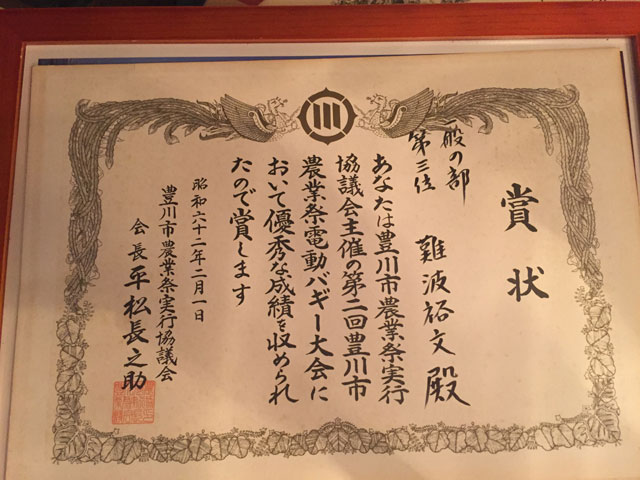 賞状
一般の部
第三位
難波裕文殿
あなたは豊川市農業祭実行
協議会主催の第二回豊川市
農業祭電動バギー大会に
おいて優秀な成績を収められ
たので賞します
昭和六十二年二月一日
豊川市農業祭実行協議会
会長平松長之助